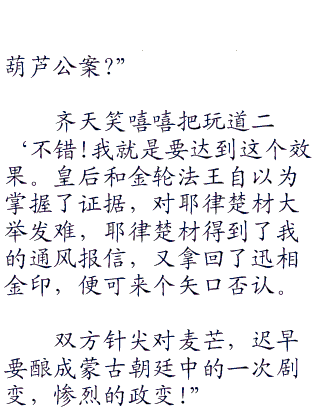 葫芦公案?”
齐天笑嘻嘻把玩道二
‘不错!我就是要达到这个效
果。皇后和金轮法王自以为
掌握了证据，对耶律楚材大
举发难，耶律楚材得到了我
的通风报信，又拿回了迅相
金印，便可来个矢口否认。
双方针尖对麦芒，迟早
要酿成蒙古朝廷中的一次剧
变，惨烈的政变!”